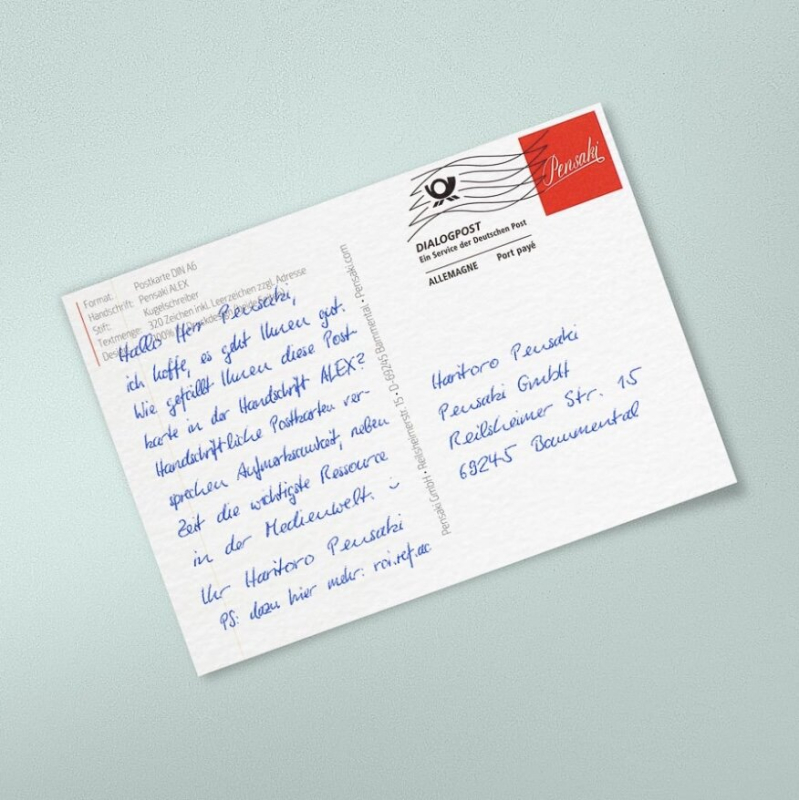 Format: Postkarte DIN A6
Handschrift: Pensaki ALEX
Stift: Kugelschreiber
Textmenge: 320 Zeichen inkl. Leerzeichen zzgl. Adresse
Hallo Herr Pensaki,
ich hoffe, es geht Ihnen gut.
Wie gefällt Ihnen diese Post-
karte in der Handschrift ALEX?
Handschriftliche Postkarten ver-
sprechen Aufmerksamkeit, neben
Zeit die wichtigste Ressource
in der Medienwelt. :)
Ihr Haritoro Pensaki
PS: dazu hier mehr: roi.ref.ac
Pensaki GmbH • Reilsheimerstr. 15 • D-69245 Bammental • Pensaki.com
Pensaki
DIALOGPOST
Ein Service der Deutschen Post
ALLEMAGNE Port payé
Haritoro Pensaki
Pensaki GmbH
Reilsheimer Str. 15
69245 Bammental